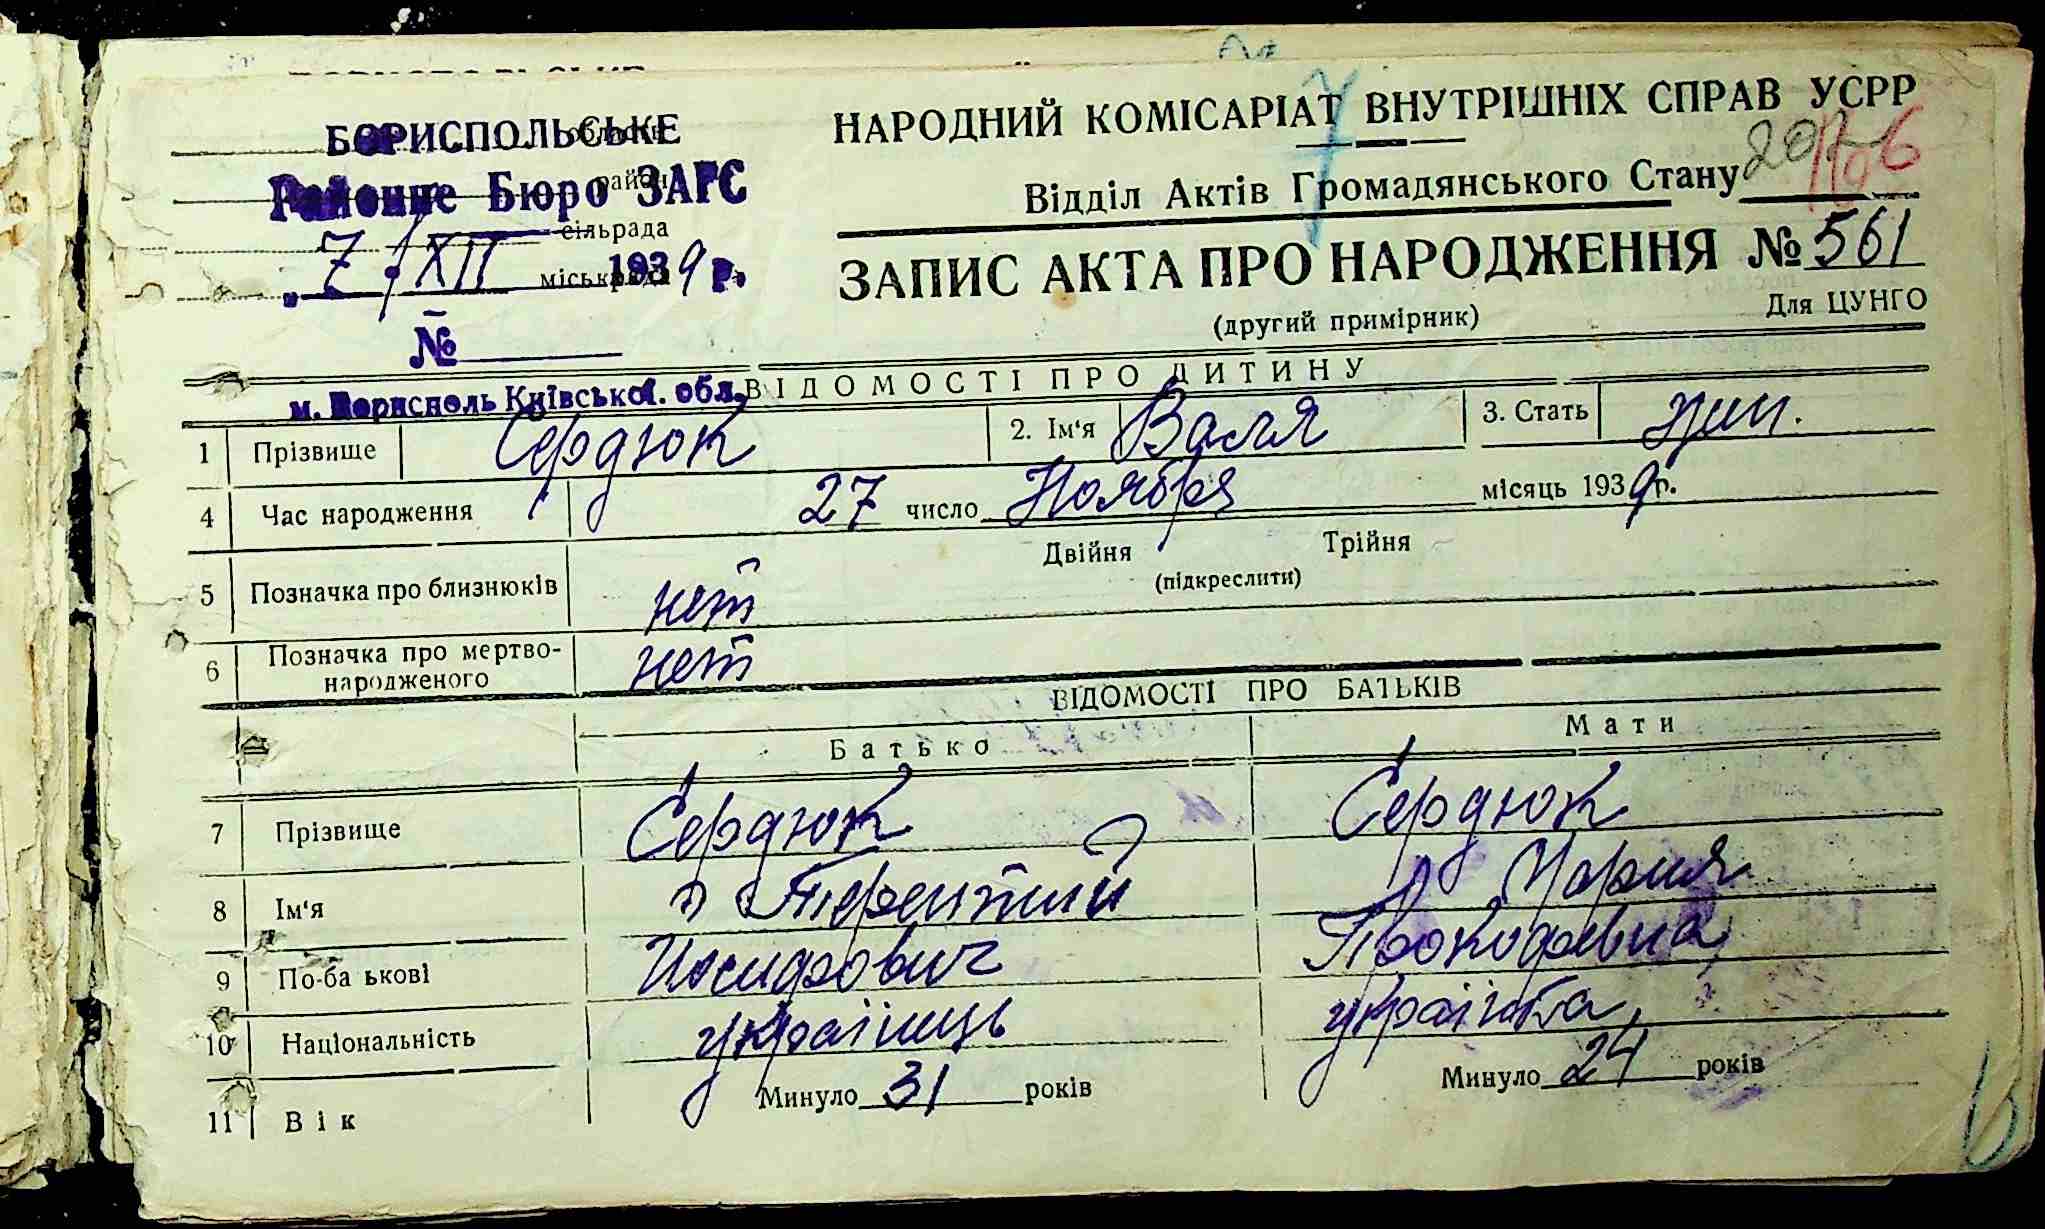 БОРИСПОЛЬСЬКЕ
Районне Бюро ЗАГС
район
сільрада
7/XII 1939 р.
міськрада
№
м. Бориспіль Київської обл.
НАРОДНИЙ КОМІСАРІАТ ВНУТРІШНІХ СПРАВ УСРР
7
Відділ Актів Громадянського Стану
ЗАПИС АКТА ПРО НАРОДЖЕННЯ № 561
(другий примірник) Для ЦУНГО
ВІДОМОСТІ ПРО ДИТИНУ
1 Прізвище Сердюк 2. Ім'я Валя 3. Стать жин.
4 Час народження 27 число Ноября місяць 1939 р.
Двійня Трійня
5 Позначка про близнюків нет (підкреслити)
6 Позначка про мертво-
народженого нет
ВІДОМОСТІ ПРО БАТЬКІВ
Батько Мати
7 Прізвище Сердюк Сердюк
8 Ім'я Терентий Мария
9 По-ба ькові Иосифович Прокофевна
10 Національність українець українка
11 Вік Минуло 31 років Минуло 24 років